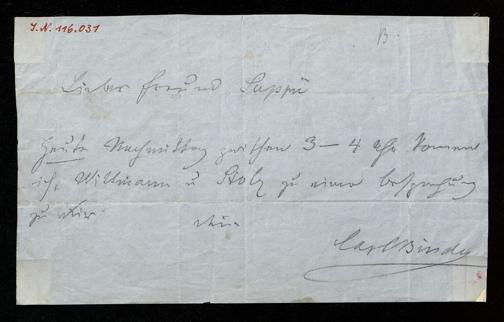 I.N. 116.031
B.
Lieber Freund Suppé
Heute Nachmittag zwischen 3 – 4 Uhr komen
ich, Willmann u Stolz zu einer besprechung
zu Dir
Dein
Carl Binder